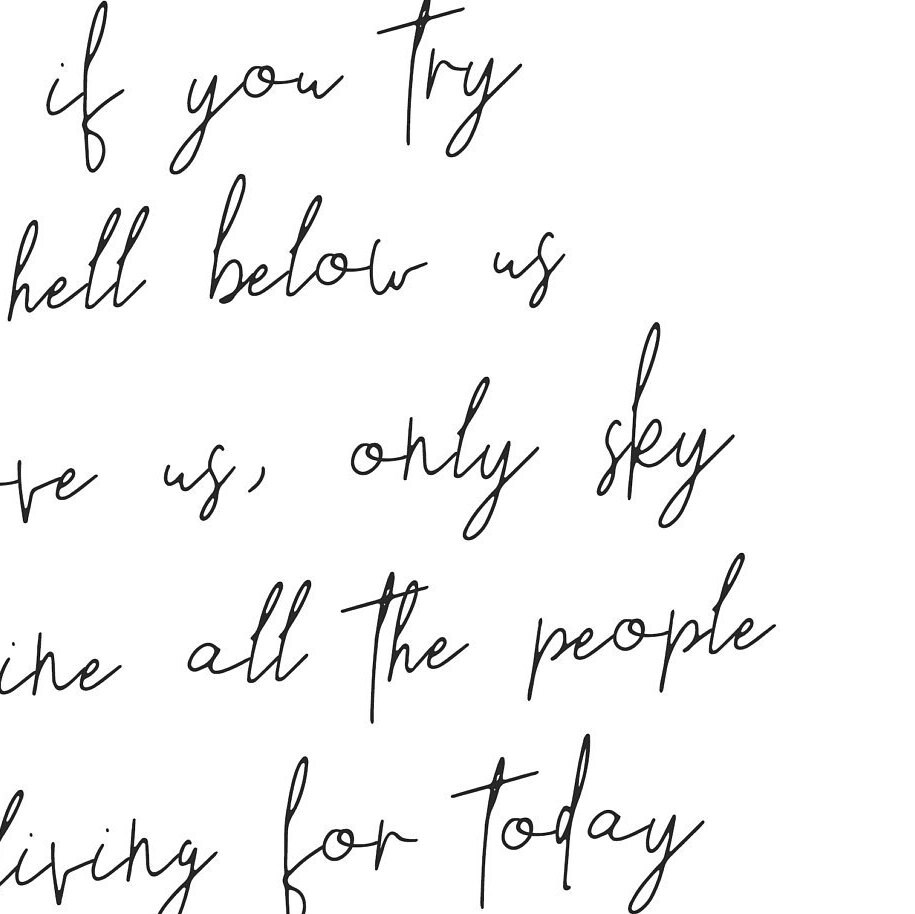 if you try
hell below us
ve us, only sky
ine all the people
living for today